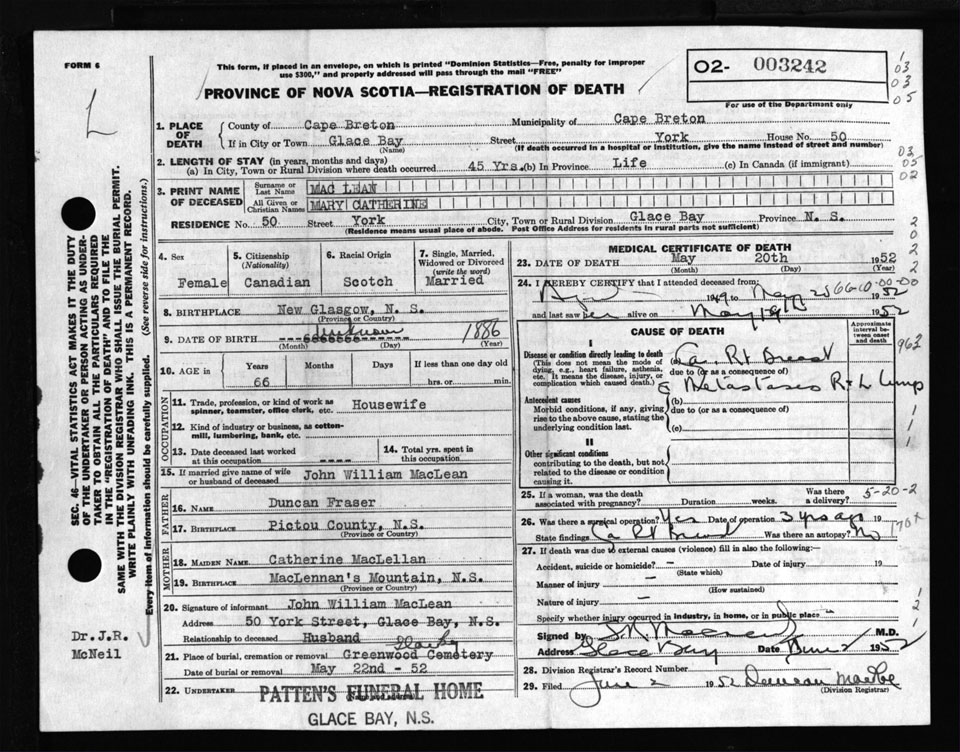 FORM 6
This form, if placed in an envelope, on which is printed "Dominion Statistics—Free, penalty for improper
use $300," and properly addressed will pass through the mail "FREE"
PROVINCE OF NOVA SCOTIA—REGISTRATION OF DEATH
02- 003242
For use of the Department only
1
03
03
05
03
05
02
L
1. PLACE OF DEATH
County of Cape Breton Municipality of Cape Breton
If in City or Town Glace Bay Street York House No. 50
(Name) (If death occurred in a hospital or institution, give the name instead of street and number)
2. LENGTH OF STAY (in years, months and days)
(a) In City, Town or Rural Division where death occurred 45 Yrs. (b) In Province Life (c) In Canada (if immigrant)
3. PRINT NAME OF DECEASED
Surname or Last Name MAC LEAN
All Given or Christian Names MARY CATHERINE
RESIDENCE No. 50 Street York City, Town or Rural Division Glace Bay Province N. S.
(Residence means usual place of abode. Post Office Address for residents in rural parts not sufficient)
4. Sex
Female
5. Citizenship
(Nationality)
Canadian
6. Racial Origin
Scotch
7. Single, Married,
Widowed or Divorced
(write the word)
Married
8. BIRTHPLACE New Glasgow, N. S.
(Province or Country)
9. DATE OF BIRTH unknown 1886
(Month) (Day) (Year)
10. AGE in
Years Months Days If less than one day
66 hrs. or min.
OCCUPATION
11. Trade, profession, or kind of work as
spinner, teamster, office clerk, etc. Housewife
12. Kind of industry or business, as cotton-
mill, lumbering, bank, etc.
13. Date deceased last worked
at this occupation
14. Total yrs. spent in
this occupation
15. If married give name of wife
or husband of deceased John William MacLean
FATHER
16. NAME Duncan Fraser
17. BIRTHPLACE Pictou County, N.S.
(Province or Country)
MOTHER
18. MAIDEN NAME Catherine MacLellan
19. BIRTHPLACE MacLennan's Mountain, N.S.
(Province or Country)
20. Signature of informant John William MacLean
Address 50 York Street, Glace Bay, N.S.
Relationship to deceased Husband
21. Place of burial, cremation or removal Greenwood Cemetery
Date of burial or removal May 22nd - 52
22. UNDERTAKER PATTEN'S FUNERAL HOME
(Name and address)
GLACE BAY, N.S.
MEDICAL CERTIFICATE OF DEATH
23. DATE OF DEATH May 20th 1952
(Month) (Day) (Year)
24. I HEREBY CERTIFY that I attended deceased from:
1949 to May 1952
and last saw her alive on May 19 1952
CAUSE OF DEATH
Approximate
interval be-
tween onset
and death
I
Disease or condition directly leading to death
(This does not mean the mode of
dying, e.g., heart failure, asthenia,
etc. It means the disease, injury, or
complication which caused death.)
(a) Ca Rt Breast
due to (or as a consequence of)
Metastases R + L
Antecedent causes
Morbid conditions, if any, giving
rise to the above cause, stating the
underlying condition last.
(b)
due to (or as a consequence of)
(c)
II
Other significant conditions
contributing to the death, but not
related to the disease or condition
causing it.
25. If a woman, was the death
associated with pregnancy? Duration weeks. Was there
a delivery?
5-20-2
26. Was there a surgical operation? Yes Date of operation 3 yrs ago 19
State findings Ca Rt Breast Was there an autopsy? No
27. If death was due to external causes (violence) fill in also the following:—
Accident, suicide or homicide? — Date of injury 19
(State which)
Manner of injury —
(How sustained)
Nature of injury —
Specify whether injury occurred in industry, in home, or in public place —
Signed by M.D.
Address Glace Bay Date June 2 1952
28. Division Registrar's Record Number
29. Filed June 2 1952 Duncan
(Division Registrar)
SEC. 46—VITAL STATISTICS ACT MAKES IT THE DUTY
OF THE UNDERTAKER OR PERSON ACTING AS UNDER-
TAKER TO OBTAIN ALL THE PARTICULARS REQUIRED
IN THE "REGISTRATION OF DEATH" AND TO FILE THE
SAME WITH THE DIVISION REGISTRAR WHO SHALL ISSUE THE BURIAL PERMIT.
WRITE PLAINLY WITH UNFADING INK. THIS IS A PERMANENT RECORD.
Every item of information should be carefully supplied. (See reverse side for instructions.)
Dr.J.R.
McNeil